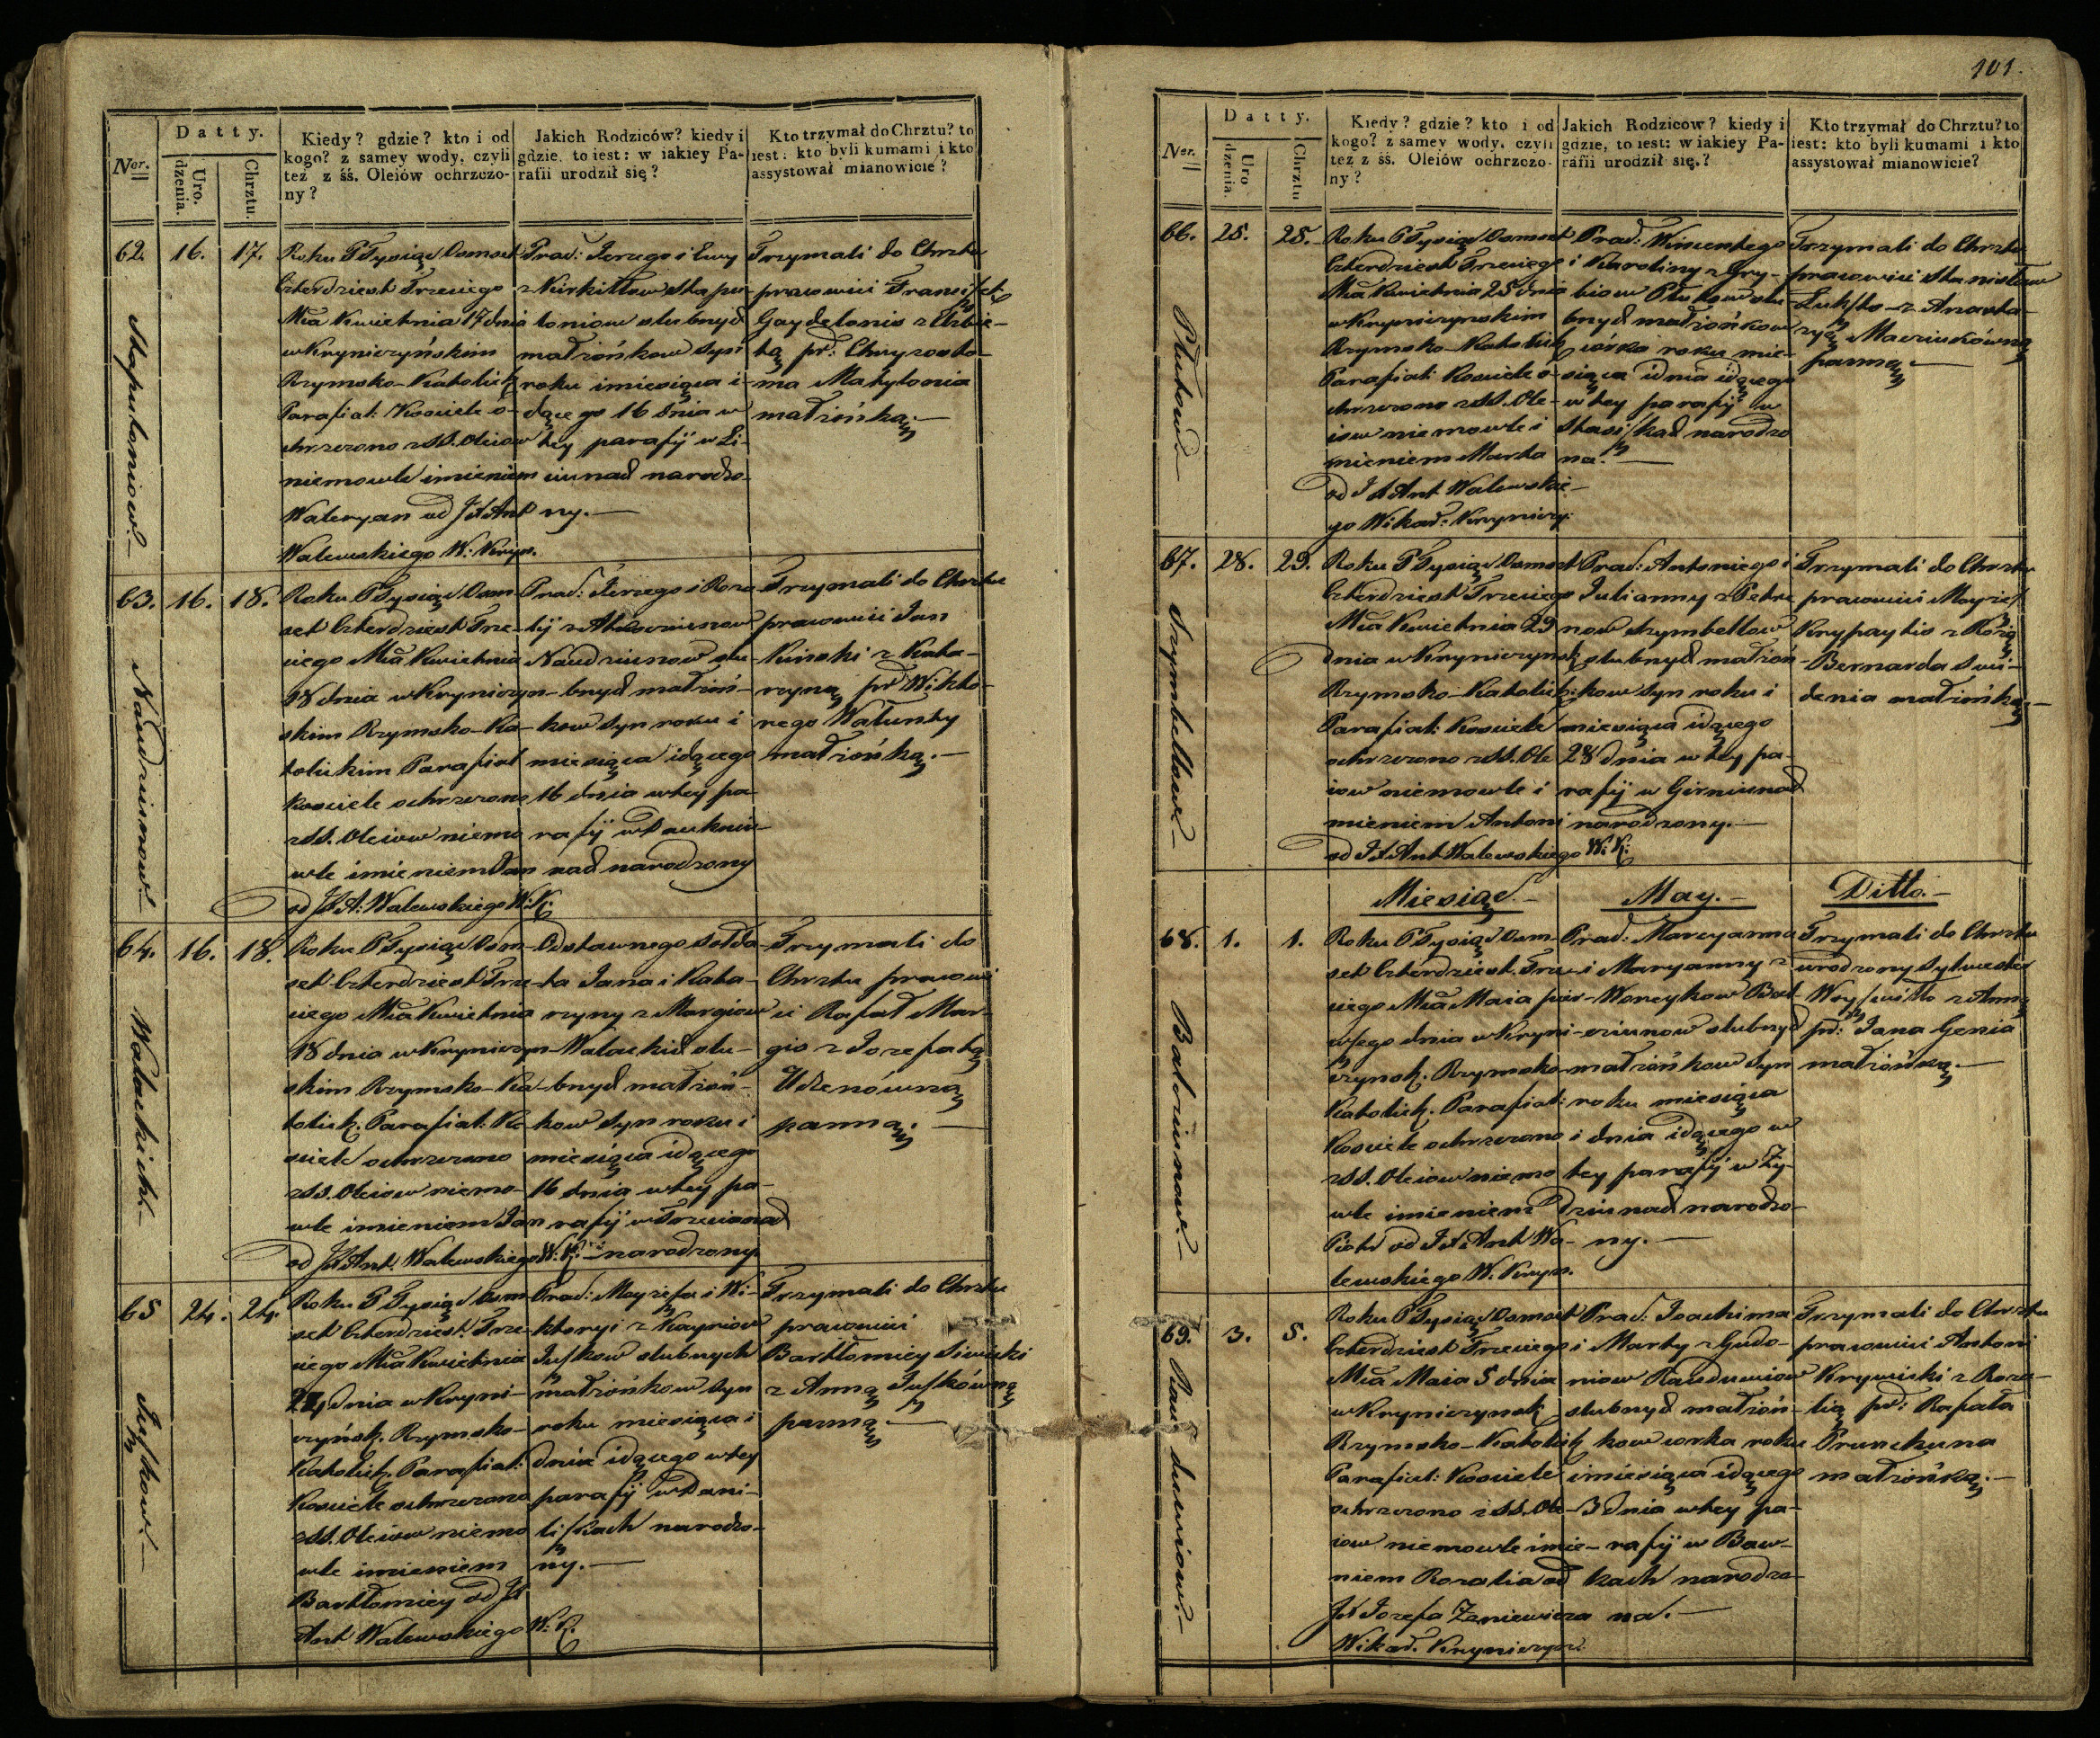 101.
Datty.
Ner.
Uro.
dzenia.
Chrztu.
Kiedy? gdzie? kto i od
kogo? z samey wody, czyli
też z śś. Oleiów ochrzczo-
ny?
Jakich Rodziców? kiedy i
gdzie, to iest: w iakiey Pa-
rafii urodził się?
Kto trzymał do Chrztu? to
iest: kto byli kumami i kto
assystował mianowicie?
62. 16. 17.
Staputoniow.—
Roku P Tysiąc Osmset
Czterdziest Trzeciego
Mca Kwietnia 17 dnia
w Kryniczyńskim
Rzymsko-Katolick
Parafial: Kosciele o-
chrzczono z SS. Oleiow
niemowle imieniem
Waleryan od JX Ant
Walewskiego W: Krync.
Prac: Jerzego i Ewy
z Nirkitlow Stapu-
toniow slubnych
małżonkow syn
roku i miesiąca i-
dącego 16 dnia w
tey parafij w Li-
ciunach narodzo-
ny.—
Trzymali do Chrztu
pracowici Franciszek
Gaydelonis z Elzbie-
tą pd: Chryzosto-
ma Matytonia
małżonką.—
63. 16. 18.
Naudziunow.—
Roku P Tysiąc Osm-
set Czterdziest Trze-
ciego Mca Kwietnia
18 dnia w Kryniczyn-
skim Rzymsko-Ka-
tolickim Parafial
kosciele ochrzczono
z SS. Oleiow niemo
wle imieniem Jan
od JX A: Walewskiego W: K:
Prac: Jerzego i Roza
lij
Naudziunow slu-
bnych małżon-
kow syn roku i
miesiąca idącego
16 dnia w tey pa-
rafij w Pauknia-
nach narodzony
Trzymali do Chrztu
pracowici Jan
Kinski z Kata-
rzyną pd Wikto-
rego Watunty
małżonką.—
64. 16. 18.
Watackich.—
Roku P Tysiąc Osm-
set Czterdziest Trze-
ciego Mca Kwietnia
18 dnia w Kryniczyn-
skim Rzymsko-Ka-
tolick. Parafial: Ko-
sciele ochrzczono
z SS. Oleiow niemo-
wle imieniem Jan
od JX Ant. Walewskiego W: K:
Odstawnego Solda-
ta Jana i Kata-
rzyny z Margiow
Watackich slu-
bnych małżon-
kow syn roku i
miesiąca idącego
16 dnia w tey pa-
rafij w Trzecianach
narodzony
Trzymali do
Chrztu pracowi
ci Rafał Mar-
gis z Jozefatą
Udzenówną
panną.—
65 24. 24.
Juszkow.—
Roku P Tysiąc Osm-
set Czterdziest. Trze-
ciego Mca Kwietnia
24 dnia w Kryni-
czyńsk. Rzymsko-
Katolick. Parafial:
Kosciele ochrzczono
z SS. Oleiow niemo
wle imieniem
Bartłomiey od JX
Ant Walewskiego W: K.
Prac: Moyzesza i Wi-
ktoryi z Kayriow
Juszkow slubnych
małżonkow syn
roku miesiąca i
dnia idącego w tey
parafij w Dani-
liszkach narodzo-
ny.—
Trzymali do Chrztu
pracowici
Bartłomiey Siwicki
z Anną Juszkówną
panną.—
Datty.
Ner.
Uro
dzenia.
Chrztu
Kiedy? gdzie? kto i od
kogo? z samey wody, czyli
też z śś. Oleiów ochrzczo-
ny?
Jakich Rodziców? kiedy i
gdzie, to iest: w iakiey Pa-
rafii urodził się.?
Kto trzymał do Chrztu? to
iest: kto byli kumami i kto
assystował mianowicie?
66. 25. 25.
Plutow.—
Roku P Tysiąc Osmset
Czterdziest Trzeciego
Mca Kwietnia 25 dnia
w Kryniczynskim
Rzymsko-Katolick
Parafial: Kosciele o-
chrzczono z SS. Ole-
iow niemowle i
mieniem Marta
od JX Ant Walewskie-
go Wikar: Kryniczy:
Prac: Wincentego
i Karoliny z Gry-
biow Plutow slu-
bnych małżonkow
córka roku mie-
siąca i dnia idącego
w tey parafij w
Stasiszkach narodzo
na.—
Trzymali do Chrztu
pracowici Stanisław
Lukszto z Anasta-
zyą Macziukówną
panną.—
67. 28. 29.
Szymbellow.—
Roku P Tysiąc Osmset
Czterdziest Trzeciego
Mca Kwietnia 29
dnia w Kryniczynsk
Rzymsko-Katolick:
Parafial: Kosciele
ochrzczono z SS. Ole
iow niemowle i
mieniem Antoni
od JX Ant Walewskiego W: K:
Prac: Antoniego i
Julianny z Petre
now Szymbellow
slubnych małżon-
kow syn roku i
miesiąca idącego
28 dnia w tey pa-
rafij w Girniunach
narodzony.—
Trzymali do Chrztu
pracowici Moyzesz
Krypaytis z Rozą
Bernarda Swi-
denia małżonką.—
Miesiąc.— May.— Ditto.—
68. 1. 1.
Balciunow.—
Roku P Tysiąc Osm-
set Czterdziest. Trze-
ciego Mca Maia pier-
wszego dnia w Kryni-
czynsk. Rzymsko-
Katolick. Parafial:
Kosciele ochrzczono
z SS. Oleiow niemo
wle imieniem
Piotr od JX Ant Wa-
lewskiego W. Krync.
Prac: Marcyanna
i Maryanny z
Woncykow Bal-
cziunow slubnych
małżonkow syn
roku miesiąca
i dnia idącego w
tey parafij w Ży-
dziunach narodzo-
ny.—
Trzymali do Chrztu
urodzony Sylwester
Woyszwiłło z Anną
pd: Jana Genia
małżonką.—
69. 3. 5.
Rauduwiow.—
Roku P Tysiąc Osmset
Czterdziest Trzeciego
Mca Maia 5 dnia
w Kryniczynsk
Rzymsko-Katolick
Parafial: Kosciele
ochrzczono z SS. Ole-
iow niemowle imie-
niem Rozalia od
JX Jozefa Zaniewicza
Wikar. Kryniczyn:
Prac: Joachima
i Marty z Gudo-
niow Rauduwiow
slubnych małżon-
kow corka roku
i miesiąca idącego
3 dnia w tey pa-
rafij w Baw-
kach narodzo-
na.—
Trzymali do Chrztu
pracowici Antoni
Krywicki z Roza-
lią pd: Rafała
Prunckuna
małżonką.—